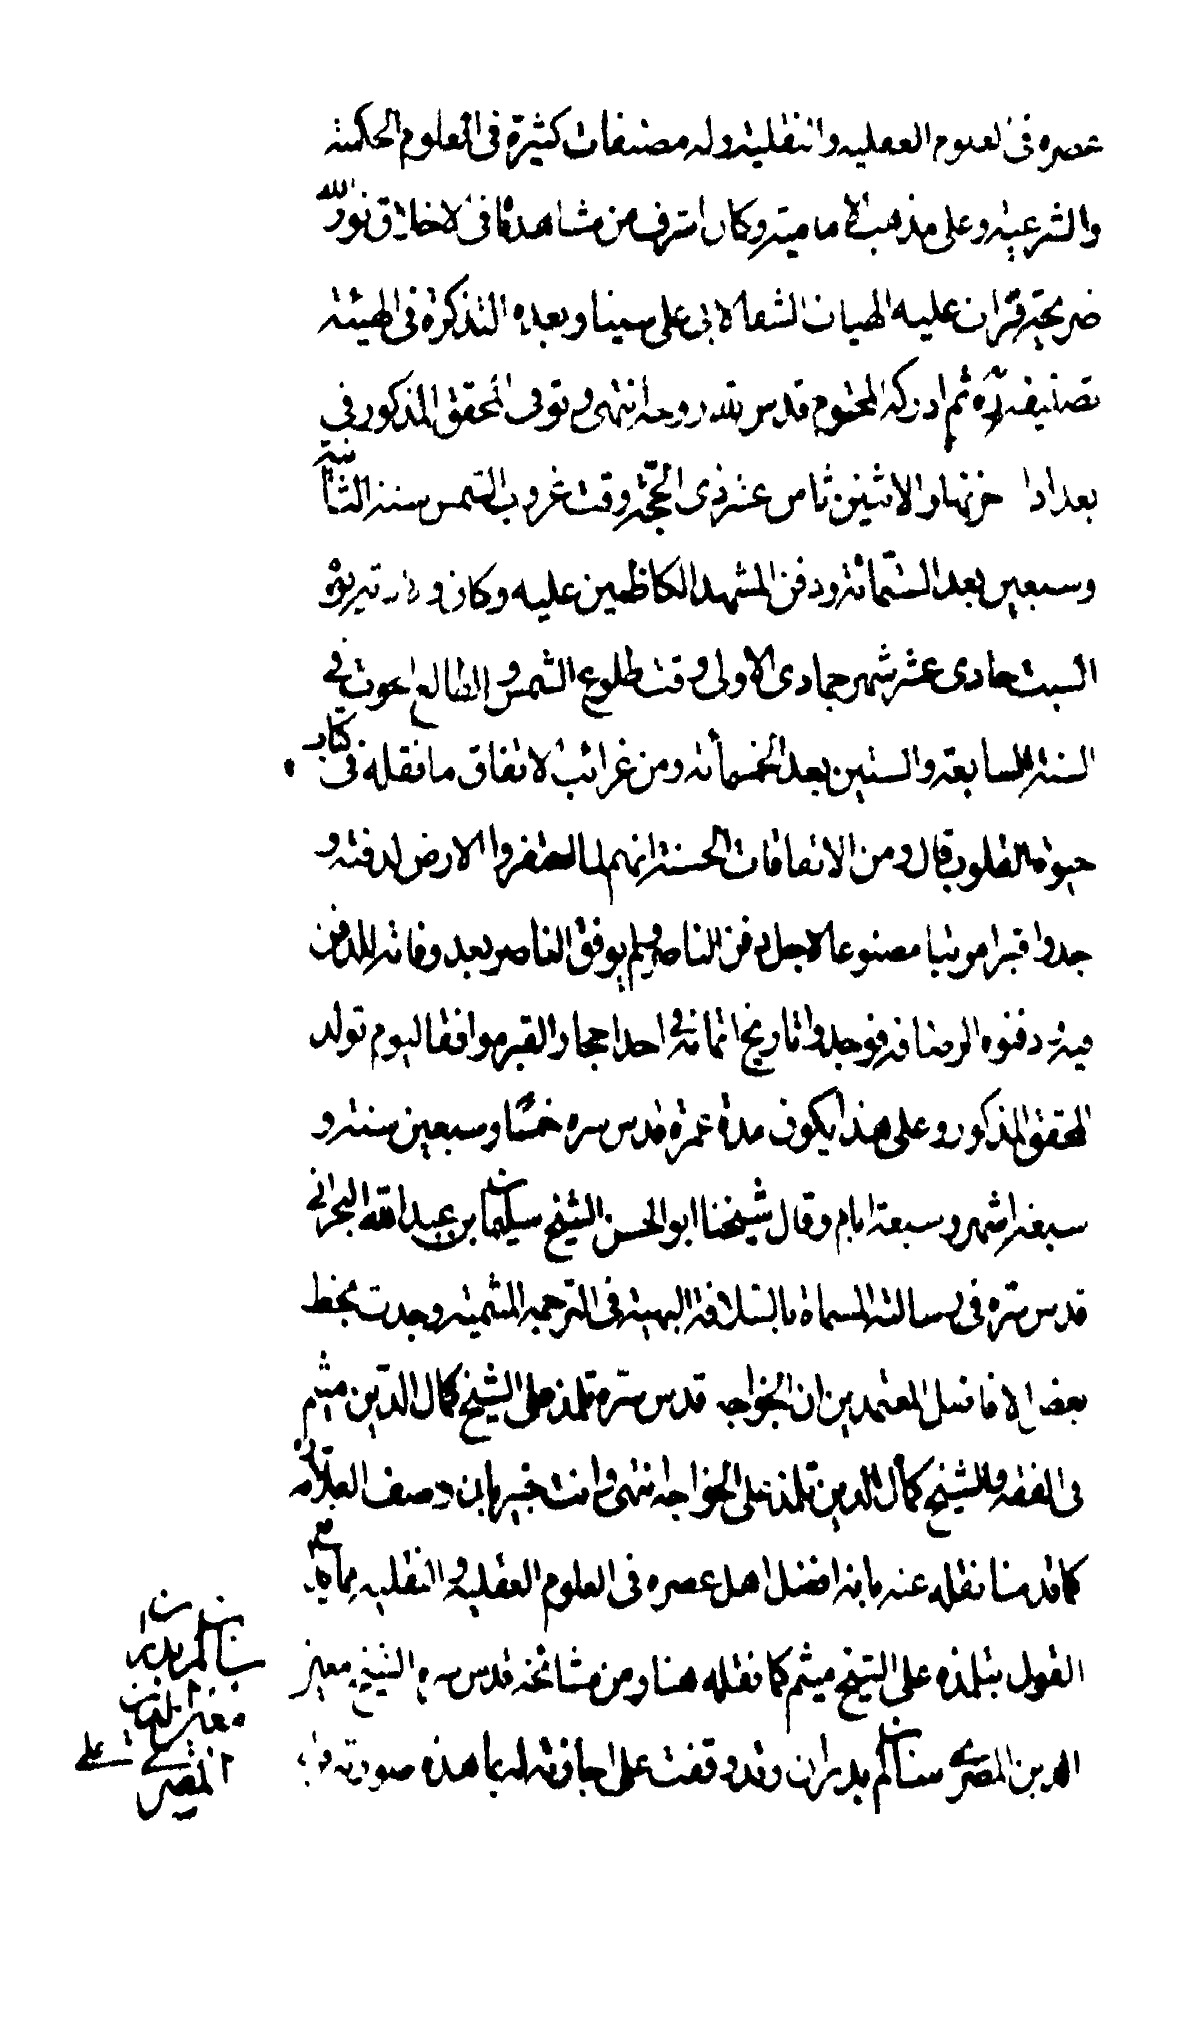 عصره فى العلوم العقليه والنقلية وله مصنفات كثيرة فى العلوم الحكمية
والشرعية وعلى مذهب الامامية وكان اشرف من شاهدناه فى الاخلاق نور الله
ضريحه قرات عليه الهيات الشفاء لابى على سينا وبعده التذكرة فى الهيئة
تصنيفه ره ثم ادركه المحتوم قدس الله روحه انتهى وتوفى المحقق المذكور فى
بغداد اخر نهار الاثنين ثامن عشر ذى الحجة وقت غروب الشمس سنة الثانية
وسبعين بعد الستمائة ودفن المشهد الكاظمين عليه وكان
السبت حادى عشر شهر جمادى الاولى وقت طلوع الشمس والطالع الحوت فى
السنة السابعة والستين بعد الخمسمائة ومن غرائب الاتفاق ما نقله فى كتاب
حيوة القلوب قال ومن الاتفاقات الحسنة انهم لما احتفروا الارض لدفنه و
جدوا قبرا مرتبا مصنوعا لاجل دفن الناصر ولم يوفق الناصر بعد وفاته للدفن
فيه دفنوه الرصافه فوجدوا تاريخ اتمامه فى احد احجار القبر موافقا ليوم تولد
المحقق المذكور وعلى هذا يكون مدة عمره قدس سره خمسا وسبعين سنة و
سبعة اشهر وسبعة ايام وقال شيخنا ابو الحسن الشيخ سليمان بن عبد الله البحرانى
قدس سره فى رسالته المسماة بالسلافة البهية فى الترجمة الميثمية وجدت بخط
بعض الافاضل المعتمدين ان الخواجه قدس سره تلمذ على الشيخ كمال الدين ميثم
فى الفقه والشيخ كمال الدين تلمذ على الخواجه انتهى وانت خبير بان وصف العلامة
كما قدمنا نقله عنه بانه افضل اهل عصره فى العلوم العقليه والنقليه مما
القول بتلمذه على الشيخ ميثم كما نقله هنا ومن مشائخه قدس سره الشيخ معين
الدين المصرى سالم بدران وقد وقفت على اجازته له بما هذه صورته
سالم بن بدران
معين الدين
المصرى
على